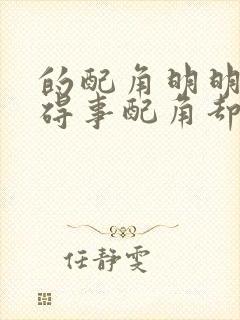 的配角明明
碍事配角却
任静雯